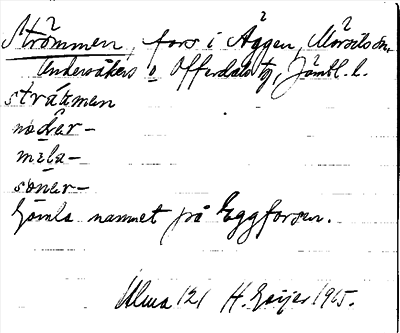 Strömmen, fors i Äggen, Mörsils sn
Undersåkers o Offerdals tg, Jämtl. l.
strämen
nöder-
mela-
söner-
Gamla namnet på Eggforsen.
Ulma 121 H. Geijer 1915.